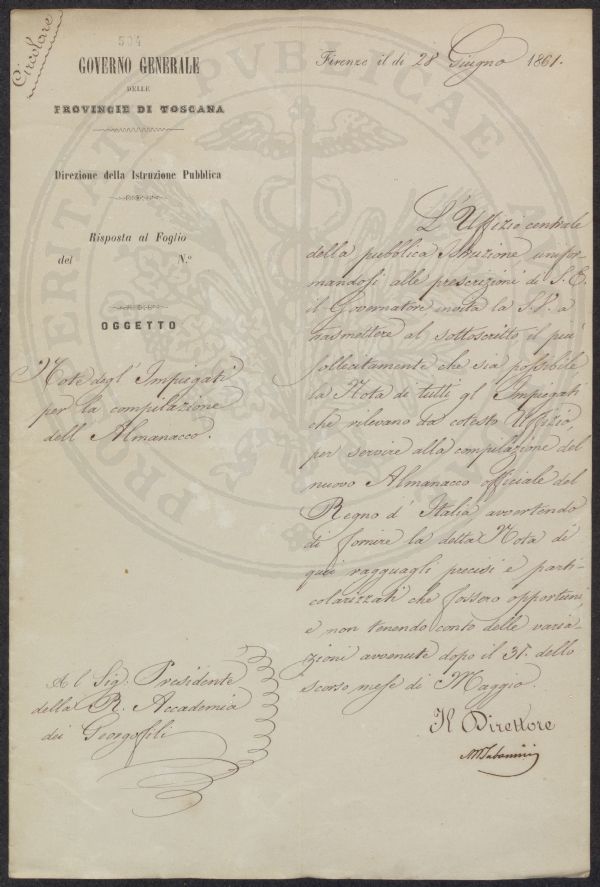 Circolare
504
GOVERNO GENERALE
DELLE
PROVINCIE DI TOSCANA
Direzione della Istruzione Pubblica
Risposta al Foglio
del N.º
OGGETTO
Note degl' Impiegati
per la compilazione
dell' Almanacco.
Al Sig. Presidente
della R. Accademia
dei Georgofili
Firenze il di 28 Giugno 1861.
L'Uffizio centrale
della pubblica Istruzione unifor-
mandosi alle prescrizioni di S. E.
il Governatore invita la S. V. a
trasmettere al sottoscritto il più
sollecitamente che sia possibile
la Nota di tutti gl' Impiegati
che rilevano da cotesto Uffizio,
per servire alla compilazione del
nuovo Almanacco officiale del
Regno d' Italia avvertendo
di fornire la detta Nota di
quei ragguagli precisi e parti-
colarizzati che fossero opportuni,
e non tenendo conto delle varia-
zioni avvenute dopo il 31. dello
scorso mese di Maggio.
Il Direttore
PUBLICAE